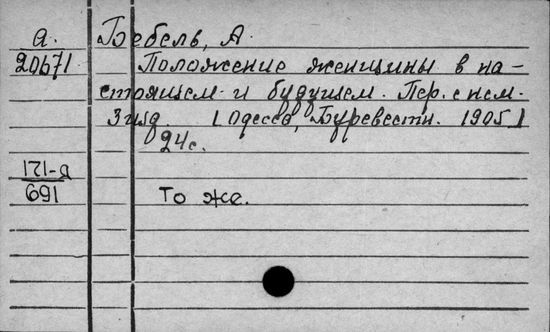 а. Бебель, А.
20671 Положение женщины в на-
стоящем и будущем. Пер. с нем.
3 изд. [Одесса, Буревестн. 1905]
94с.
121-а
169 То же.